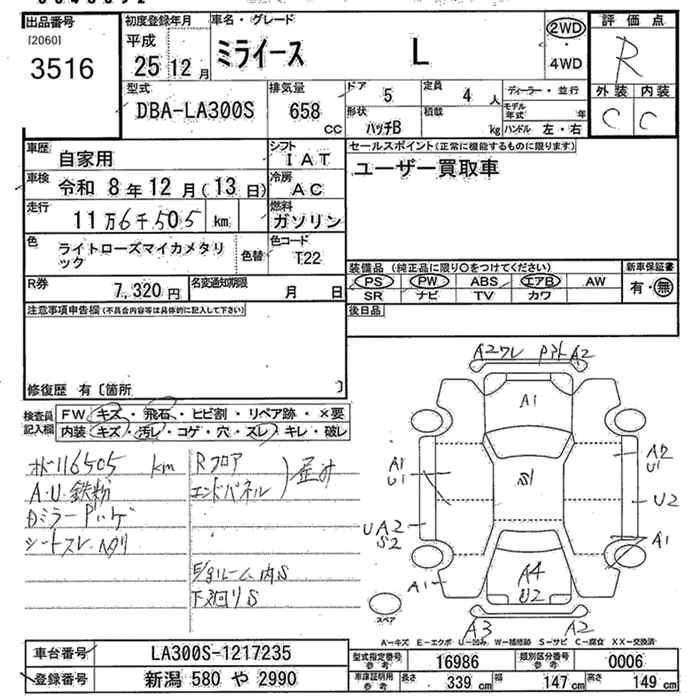 出品番号
[2060]
3516
初度登録年月
平成
25 12 月
車名・グレード
ミライース L
2WD
・
4WD
評価点
R
外装 内装
C C
型式
DBA-LA300S
排気量
658
CC
ドア 5
形状
ハッチB
定員 4 人
積載 kg
ディーラー・並行
モデル年式 年
ハンドル 左・右
車歴 自家用
シフト IAT
車検 令和 8年 12月(13日)
冷房 AC
走行 11万6千505 km
燃料 ガソリン
色 ライトローズマイカメタリック
色替
色コード T22
R券 7,320円
名変通知期限 月 日
セールスポイント(正常に機能するものに限ります)
ユーザー買取車
装備品 (純正品に限り○をつけてください)
新車保証書
PS PW ABS エアB AW
SR ナビ TV カワ
有・無
後日品
注意事項申告欄(不具合内容等は具体的に記入して下さい)
修復歴 有〔箇所 〕
検査員記入欄
FW キズ・飛石・ヒビ割・リペア跡・×要
内装 キズ・汚レ・コゲ・穴・スレ・キレ・破レ
116505 km
A・U・鉄粉
シートスレ・ヘタリ
Rフロア
エンドパネル
下廻りS
A2ワレ A2
A1
A1
U1
S1
A2
U1
U2
UA2
S2
A1
A1
A4
U2
A3 A2
スペア
A-キズ E-エクボ U-凹み W-補修跡 S-サビ C-腐食 XX-交換済
車台番号 LA300S-1217235
登録番号 新潟 580 や 2990
型式指定番号参考 16986
類別区分番号参考 0006
車庫証明用参考 長さ 339 cm 幅 147 cm 高さ 149 cm